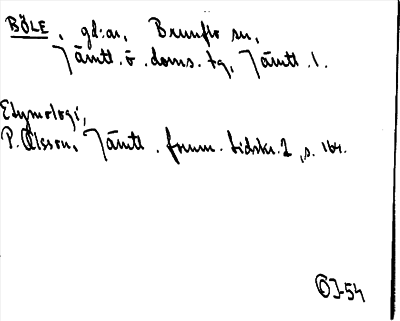 BÖLE, gd:ar, Brunflo sn,
Jämtl. ö. doms. tg, Jämtl. l.
Etymologi,
P. Olsson, Jämtl. fornm. tidskr. 2, s. 164.
OJ-54